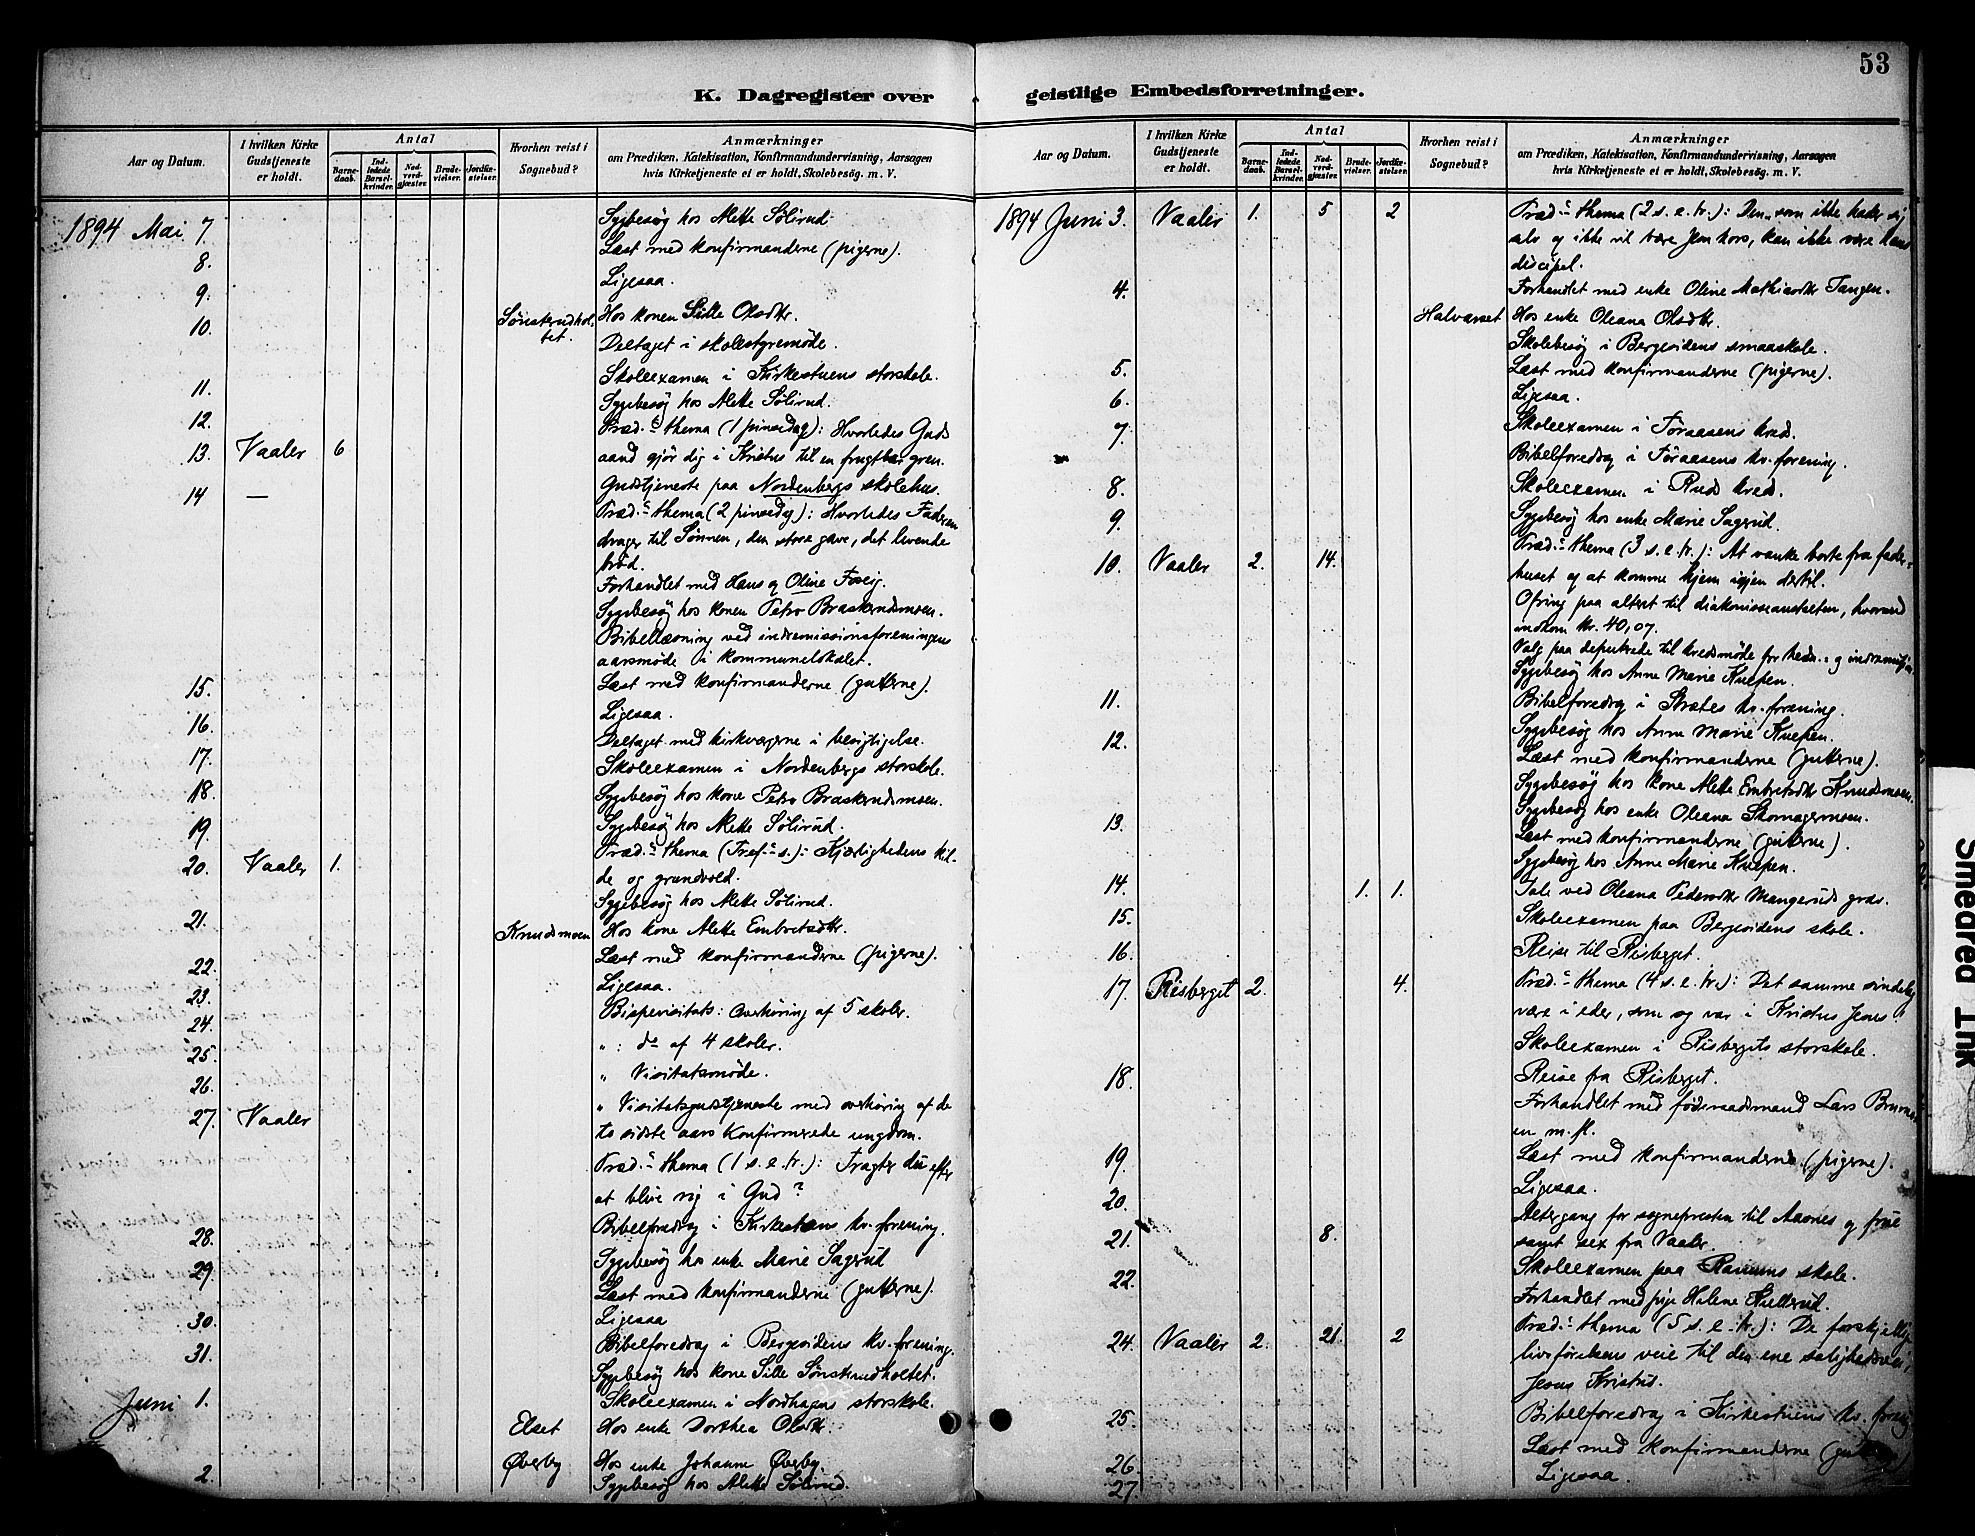 53
K. Dagregister over
geistlige Embedsforretninger.
Aar og Datum.
I hvilken Kirke Gudstjeneste er holdt.
Antal
Barnedaab.
Indledede Barselkvinder.
Nadverdgjæster.
Brudevielser.
Jordfæstelser.
Hvorhen reist i Sognebud?
Anmærkninger
om Prædiken, Katekisation, Konfirmandundervisning, Aarsagen
hvis Kirketjeneste ei er holdt, Skolebesøg. m. V.
1894 Mai 7 Sygebesøg hos Mette Sølirud.
Læst med konfirmanderne (pigerne).
8.
Ligesaa.
9.
10. Sønskrudholtet. Hos konen Sille Olsdtr.
Deltaget i skolestyremøde.
11. Skoleexamen i Kirkestuens storskole.
Sygebesøg hos Mette Sølirud.
12.
Præd.s thema (1 pinsedag): Hvorledes Guds
13. Vaaler 6 aand gjør dig i Kristus til en frugtbar gren.
14 — Gudstjeneste paa Nordenbergs skolehus.
Præd.s thema (2 pinsedg): Hvorledes Faderen
drager til Sønnen, den store gave, det levende
brød.
Forhandlet med Hans og Oline
Sygebesøg hos konen Petro Braskerudmoen.
Bibellæsning ved indremissionsforeningens
aarsmøde i kommunelokalet.
15. Læst med konfirmanderne (gutterne).
16. Ligesaa.
Deltaget med kirkeværgerne i besigtigelse.
17. Skoleexamen i Nordenbergs storskole.
18. Sygebesøg hos kone Petro Braskerudmoen.
19. Sygebesøg hos Mette Sølirud.
Præd.s thema (Tref.s s.): Kjærlighedens kil-
20. Vaaler 1. de og grundvold.
Sygebesøg hos Mette Sølirud.
21. Knudsmoen Hos kone Mette Embretsdtr.
22. Læst med konfirmanderne (pigerne).
23. Ligesaa.
24. Bispevisitats: Overhøring af 5 skoler.
25. „ : do af 4 skoler.
26. „ Visitatsmøde.
27. Vaaler „ Visitatsgudstjeneste med overhøring af de
to sidste aars konfirmerede ungdom.
Præd.s thema (1 s. e. tr.): Tragter du efter
at blive rig i Gud?
28. Bibelforedrag i Kirkestuens kv. forening.
29. Sygebesøg hos enke Marie Sagerud
Læst med konfirmanderne (gutterne).
30. Ligesaa
31. Bibelforedrag i Bergesidens kv. forening.
Sygebesøg hos kone Sille Sønskrudholtet.
Juni 1. Skoleexamen i Nordhagens storskole.
Elset Hos enke Dorthea Olsdtr.
2. Øverby Hos enke Johanne Øverby.
Sygebesøg hos Mette Sølirud.
Aar og Datum.
I hvilken Kirke Gudstjeneste er holdt.
Antal
Barnedaab.
Indledede Barselkvinder.
Nadverdgjæster.
Brudevielser.
Jordfæstelser.
Hvorhen reist i Sognebud?
Anmærkninger
om Prædiken, Katekisation, Konfirmandundervisning, Aarsagen
hvis Kirketjeneste ei er holdt, Skolebesøg. m. V.
1894 Juni 3. Vaaler 1. 5 2 Præd.s thema (2 s. e. tr.): Den, som ikke hader sig
selv og ikke vil bære Jesu kors, kan ikke være hans
discipel.
4. Forhandlet med enke Oline Mathiasdtr Tangen.
Halvarset Hos enke Oleana Olsdtr.
Skolebesøg i Bergesidens smaaskole.
5. Læst med konfirmanderne (pigerne).
6. Ligesaa.
7. Skoleexamen i Føraasens kreds.
Bibelforedrag i Føraasens kv. forening.
8. Skoleexamen i Ruds kreds.
9. Sygebesøg hos enke Marie Sagerud.
10. Vaaler 2. 14. Præd.s thema (3 s. e. tr.): At vanke borte fra fader-
huset og at komme hjem igjen dertil.
Ofring paa alteret til diakonisseanstalten, hvorved
indkom kr. 40,07.
Valg paa deputerede til kredsmøde for hedn.: og
Sygebesøg hos Anne Marie Knepen.
11. Bibelforedrag i Strætes kv. forening.
12. Sygebesøg hos Anne Marie Knepen.
Læst med konfirmanderne (gutterne).
Sygebesøg hos kone Mette Embretsdtr Knudsmoen.
13. Sygebesøg hos enke Oleana Skomagermoen.
Læst med konfirmanderne (gutterne).
Sygebesøg hos Anne Marie Knepen.
14. 1. 1. Tale ved Oleana Pedersdtr Mangeruds grav.
15. Skoleexamen paa Bergesidens skole.
16. Reise til Risberget.
17. Risberget 2. 4. Præd.s thema (4 s. e. tr.): Det samme sindelag
være i eder, som og var i Kristus Jesus.
Skoleexamen i Risbergets storskole.
18. Reise fra Risberget.
Forhandlet med føderaadsmand Lars
en m. fl.
19. Læst med konfirmanderne (pigerne).
20. Ligesaa.
21. 8. Altergang for sognepresten til Aasnes og frue
samt sex fra Vaaler.
22. Skoleexamen paa skole.
Forhandlet med pige Helene
24. Vaaler 2. 21. 2 Præd.s thema (5 s. e. tr.): De forskjellige
livsførelsens veie til den ene salighedsvei,
Jesus Kristus.
25. Bibelforedrag i Kirkestuens kv. forening
26. Læst med konfirmanderne (gutterne)
27. Ligesaa.
Smedred Ink